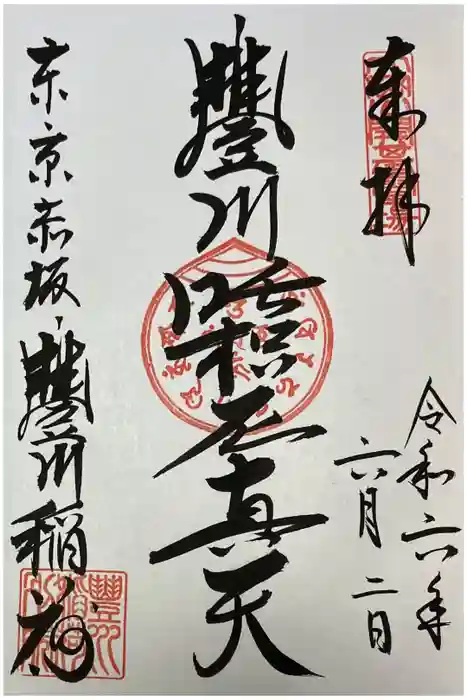 奉拝
令和六年
六月二日
豐川吒枳尼真天
東京赤坂豐川稲荷